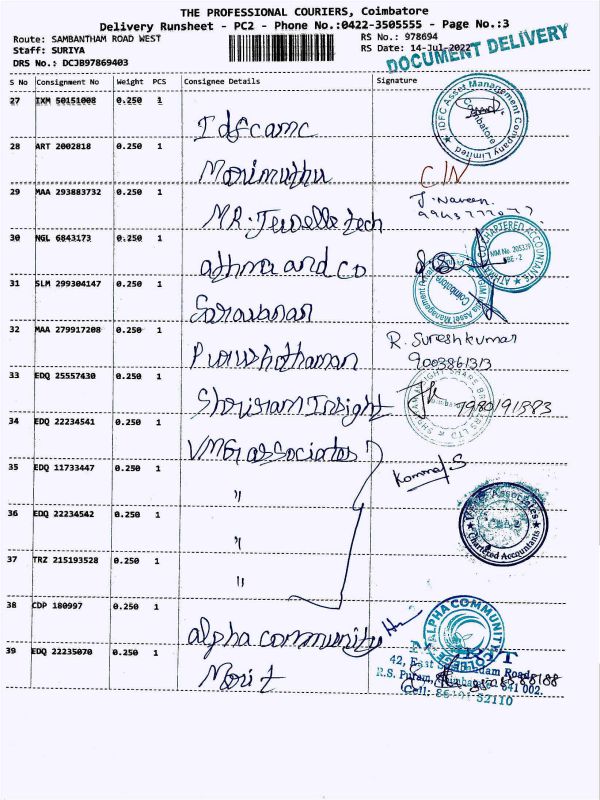 THE PROFESSIONAL COURIERS, Coimbatore
Delivery Runsheet - PC2 - Phone No.:0422-3505555 - Page No.:3
Route: SAMBANTHAM ROAD WEST
RS No.: 978694
Staff: SURIYA
RS Date: 14-Jul-2022
DRS No.: DCJB97869403
DOCUMENT DELIVERY
S No Consignment No Weight PCS Consignee Details Signature
27 IXM 50151008 0.250 1 Idfcamc
IDFC Asset Management Company Limited
Coimbatore
28 ART 2002818 0.250 1 Marimuthu
C/N
29 MAA 293883732 0.250 1 MR. Jewelle tech
J. Naveen
30 NGL 6843173 0.250 1 athma and co
CHARTERED ACCOUNTANTS
31 SLM 299304147 0.250 1 Saravanan
Asset Management
Coimbatore
32 MAA 279917208 0.250 1 Purushothaman
R. Sureshkumar
9003861313
33 EDQ 25557430 0.250 1 Shriram Insight
SHRIRAM INSIGHT SHARE BROKERS LTD
34 EDQ 22234541 0.250 1 VMG associates
35 EDQ 11733447 0.250 1 "
Kammaj.S
36 EDQ 22234542 0.250 1 "
Associates
Chartered Accountants
37 TRZ 215193528 0.250 1 "
38 CDP 180997 0.250 1 alpha community
ALPHA COMMUNITY COLLEGE
39 EDQ 22235070 0.250 1 Merit
42, East
Road,
R.S. Puram, Coimbatore - 641 002.
Cell:
52110